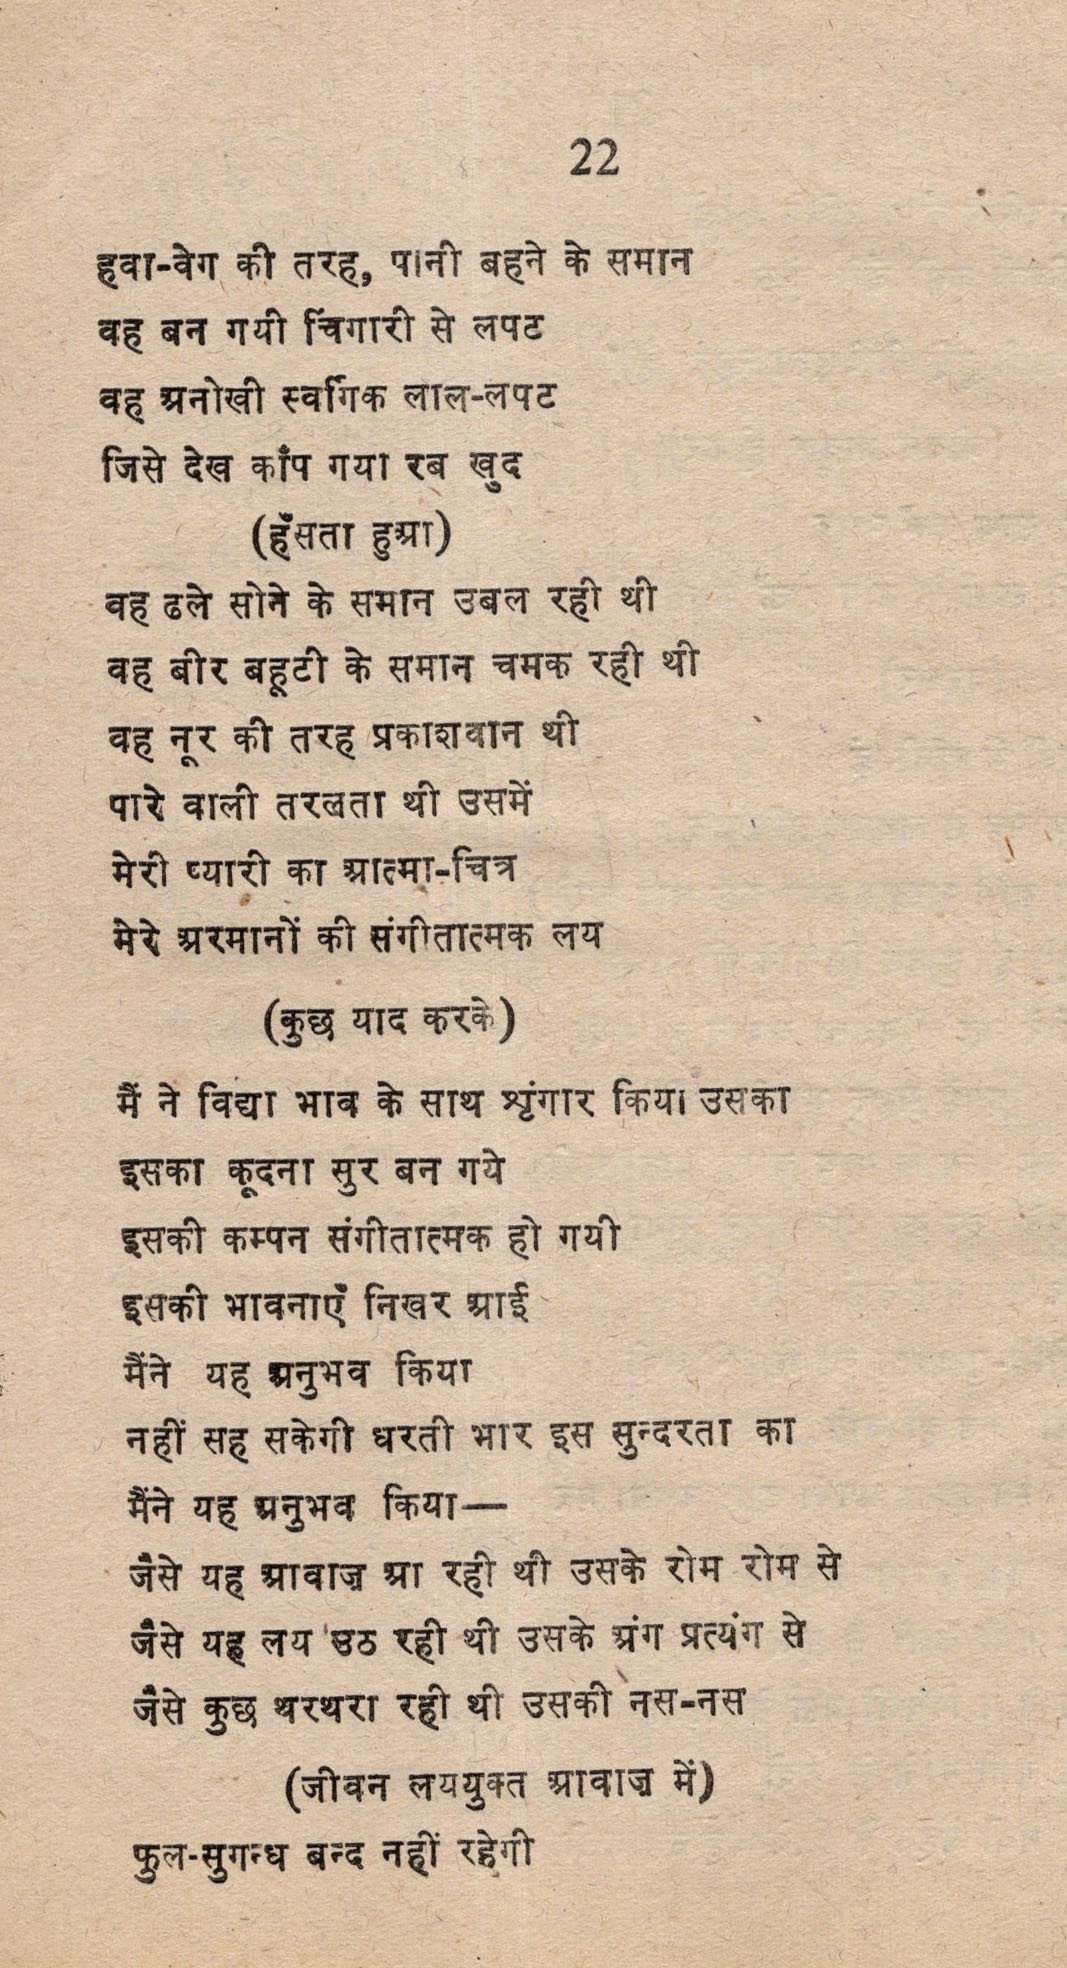 22
हवा-वेग की तरह, पानी बहने के समान
वह बन गयी चिंगारी से लपट
वह अनोखी स्वर्गिक लाल-लपट
जिसे देख काँप गया रब खुद
(हँसता हुआ)
वह ढले सोने के समान उबल रही थी
वह बीर बहूटी के समान चमक रही थी
वह नूर की तरह प्रकाशवान थी
पारे वाली तरलता थी उसमें
मेरी प्यारी का आत्मा-चित्र
मेरे अरमानों की संगीतात्मक लय
(कुछ याद करके)
मैं ने विद्या भाव के साथ शृंगार किया उसका
इसका कूदना सुर बन गये
इसकी कम्पन संगीतात्मक हो गयी
इसकी भावनाएँ निखर आई
मैंने यह अनुभव किया
नहीं सह सकेगी धरती भार इस सुन्दरता का
मैंने यह अनुभव किया—
जैसे यह आवाज़ आ रही थी उसके रोम रोम से
जैसे यह लय उठ रही थी उसके अंग प्रत्यंग से
जैसे कुछ थरथरा रही थी उसकी नस-नस
(जीवन लययुक्त आवाज़ में)
फुल-सुगन्ध बन्द नहीं रहेगी